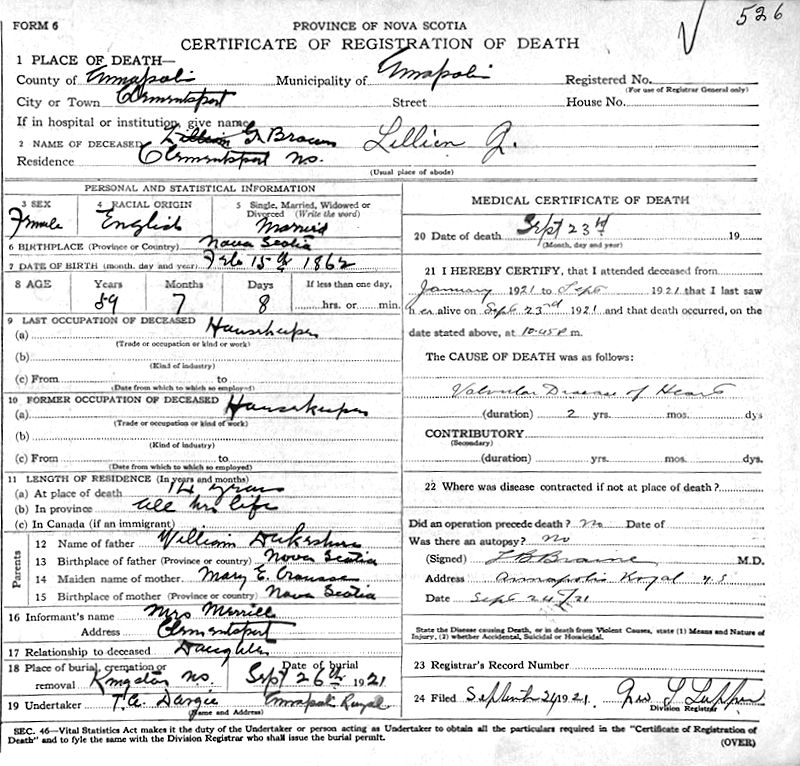 526
FORM 6
PROVINCE OF NOVA SCOTIA
CERTIFICATE OF REGISTRATION OF DEATH
1 PLACE OF DEATH—
County of Annapolis Municipality of Annapolis Registered No.
(For use of Registrar General only)
City or Town Clementsport Street House No.
If in hospital or institution, give name
2 NAME OF DECEASED Lillian G. Brown Lillien G.
Residence Clementsport NS.
(Usual place of abode)
PERSONAL AND STATISTICAL INFORMATION
3 SEX Female
4 RACIAL ORIGIN English
5 Single, Married, Widowed or Divorced (Write the word) Married
6 BIRTHPLACE (Province or Country) Nova Scotia
7 DATE OF BIRTH (month, day and year) Feb 15th 1862
8 AGE Years Months Days If less than one day,
59 7 8 hrs. or min.
9 LAST OCCUPATION OF DECEASED
(a) Housekeeper
(Trade or occupation or kind of work)
(b)
(Kind of industry)
(c) From to
(Date from which to which so employed)
10 FORMER OCCUPATION OF DECEASED
(a) Housekeeper
(Trade or occupation or kind of work)
(b)
(Kind of industry)
(c) From to
(Date from which to which so employed)
11 LENGTH OF RESIDENCE (In years and months)
(a) At place of death 14 years
(b) In province all her life
(c) In Canada (if an immigrant)
Parents
12 Name of father William
13 Birthplace of father (Province or country) Nova Scotia
14 Maiden name of mother Mary E.
15 Birthplace of mother (Province or country) Nova Scotia
16 Informant's name Mrs Merrill
Address Clementsport
17 Relationship to deceased Daughter
18 Place of burial, cremation or removal Kingston NS. Date of burial Sept 26th 1921
19 Undertaker T.A. Dargie Annapolis Royal
(Name and Address)
MEDICAL CERTIFICATE OF DEATH
20 Date of death Sept 23rd 19
(Month, day and year)
21 I HEREBY CERTIFY, that I attended deceased from
January 1921 to Sept 1921 that I last saw
h er alive on Sept 23rd 1921 and that death occurred, on the
date stated above, at 10.45 P m.
The CAUSE OF DEATH was as follows:
Valvular Disease of Heart
(duration) 2 yrs. mos. dys
CONTRIBUTORY
(Secondary)
(duration) yrs. mos. dys.
22 Where was disease contracted if not at place of death?
Did an operation precede death? No Date of
Was there an autopsy? No
(Signed) L B Braine M.D.
Address Annapolis Royal N.S.
Date Sept 24/21
State the Disease causing Death, or in death from Violent Causes, state (1) Means and Nature of
Injury, (2) whether Accidental, Suicidal or Homicidal.
23 Registrar's Record Number
24 Filed September 1921.
Division Registrar
SEC. 46—Vital Statistics Act makes it the duty of the Undertaker or person acting as Undertaker to obtain all the particulars required in the "Certificate of Registration of
Death" and to fyle the same with the Division Registrar who shall issue the burial permit.
(OVER)